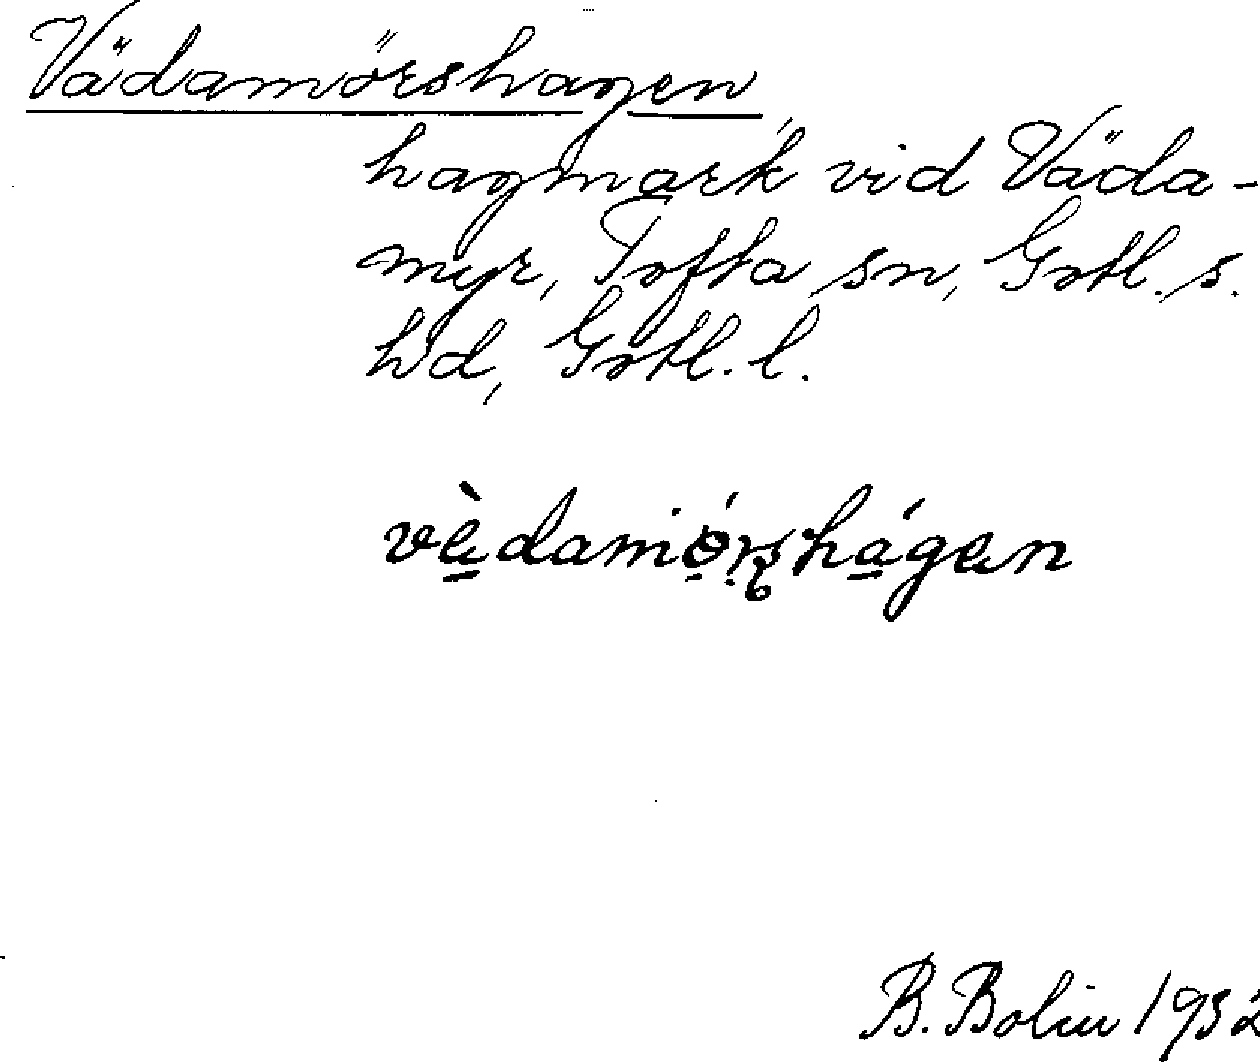 Vädamörshagen,
hagmark vid Väda-
myr, Tofta sn, Gotl. s.
hd, Gotl. l.
B. Bolin 1932